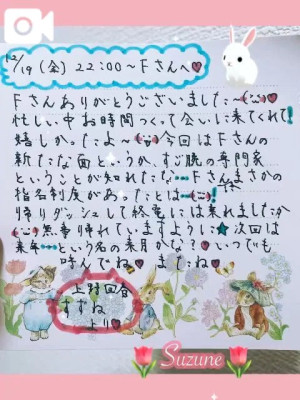 12/19(金)22:00~Fさんへ♥
Fさんありがとうございました~
忙しい中お時間つくって会いに来てくれて!
嬉しかったよ~ 今回はFさんの
新たな面というか、すご腕の専門家
ということが知れたな…Fさんまさかの
指名制度があったとは…!
帰りダッシュして終電には乗れましたか
無事帰れていますように★次回は
来年…という名の来月かな?♥いつでも
呼んでね♥またね♥
すずね
より♥
Suzune